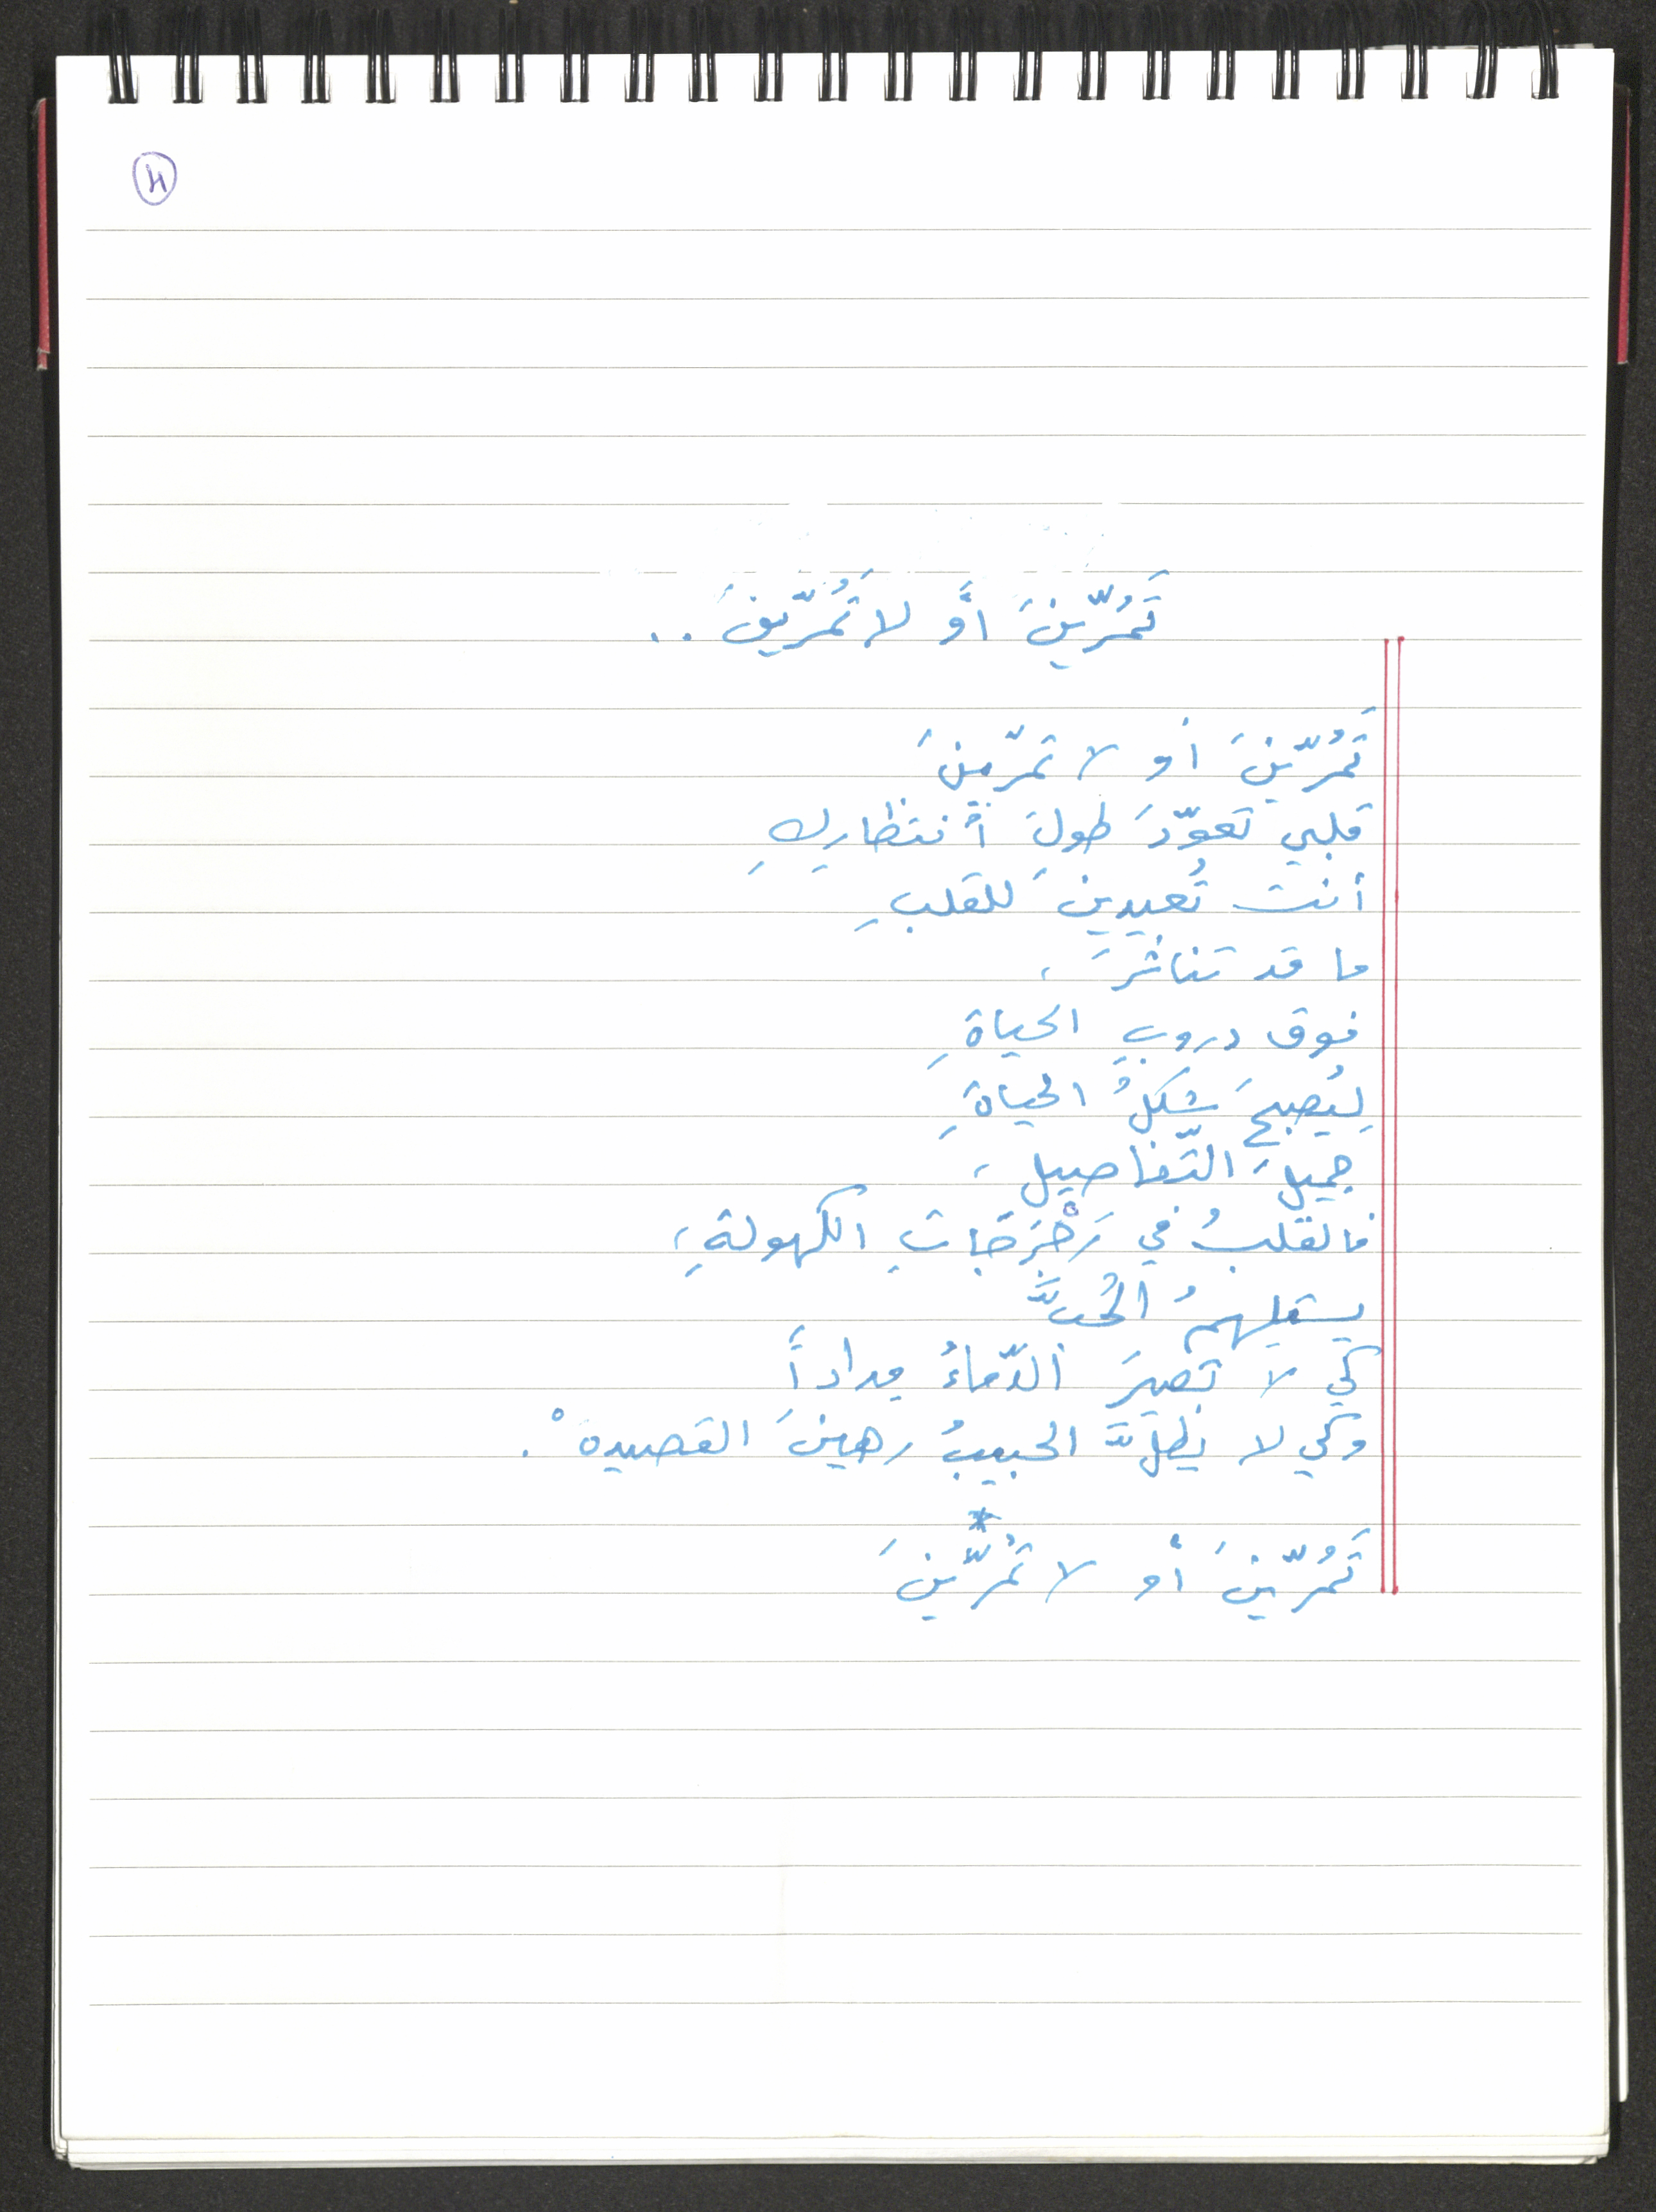 تَمُرّينَ أَو لا تَمُرّينَ ..
تَمُرّينَ أو لا تمرّينَ
قلبي تعوّدَ طولَ انتظاركِ
أنت تُعيدينَ للقلبِ
ما قد تناثرَ ،
فوق دروبِ الحياةِ
لِيُصبحَ شكلُ الحياةِ
جميلَ التّفاصيل ،
فالقلبُ في الكهولةِ ،
يستلهمُ الحُبَّ
كي لا تصيرَ الدّماءُ مداداً
وكي لا يظلَّ الحبيبُ رهينَ القصيدهْ .
*
تَمُرّينَ أو لا تمُرّينَ